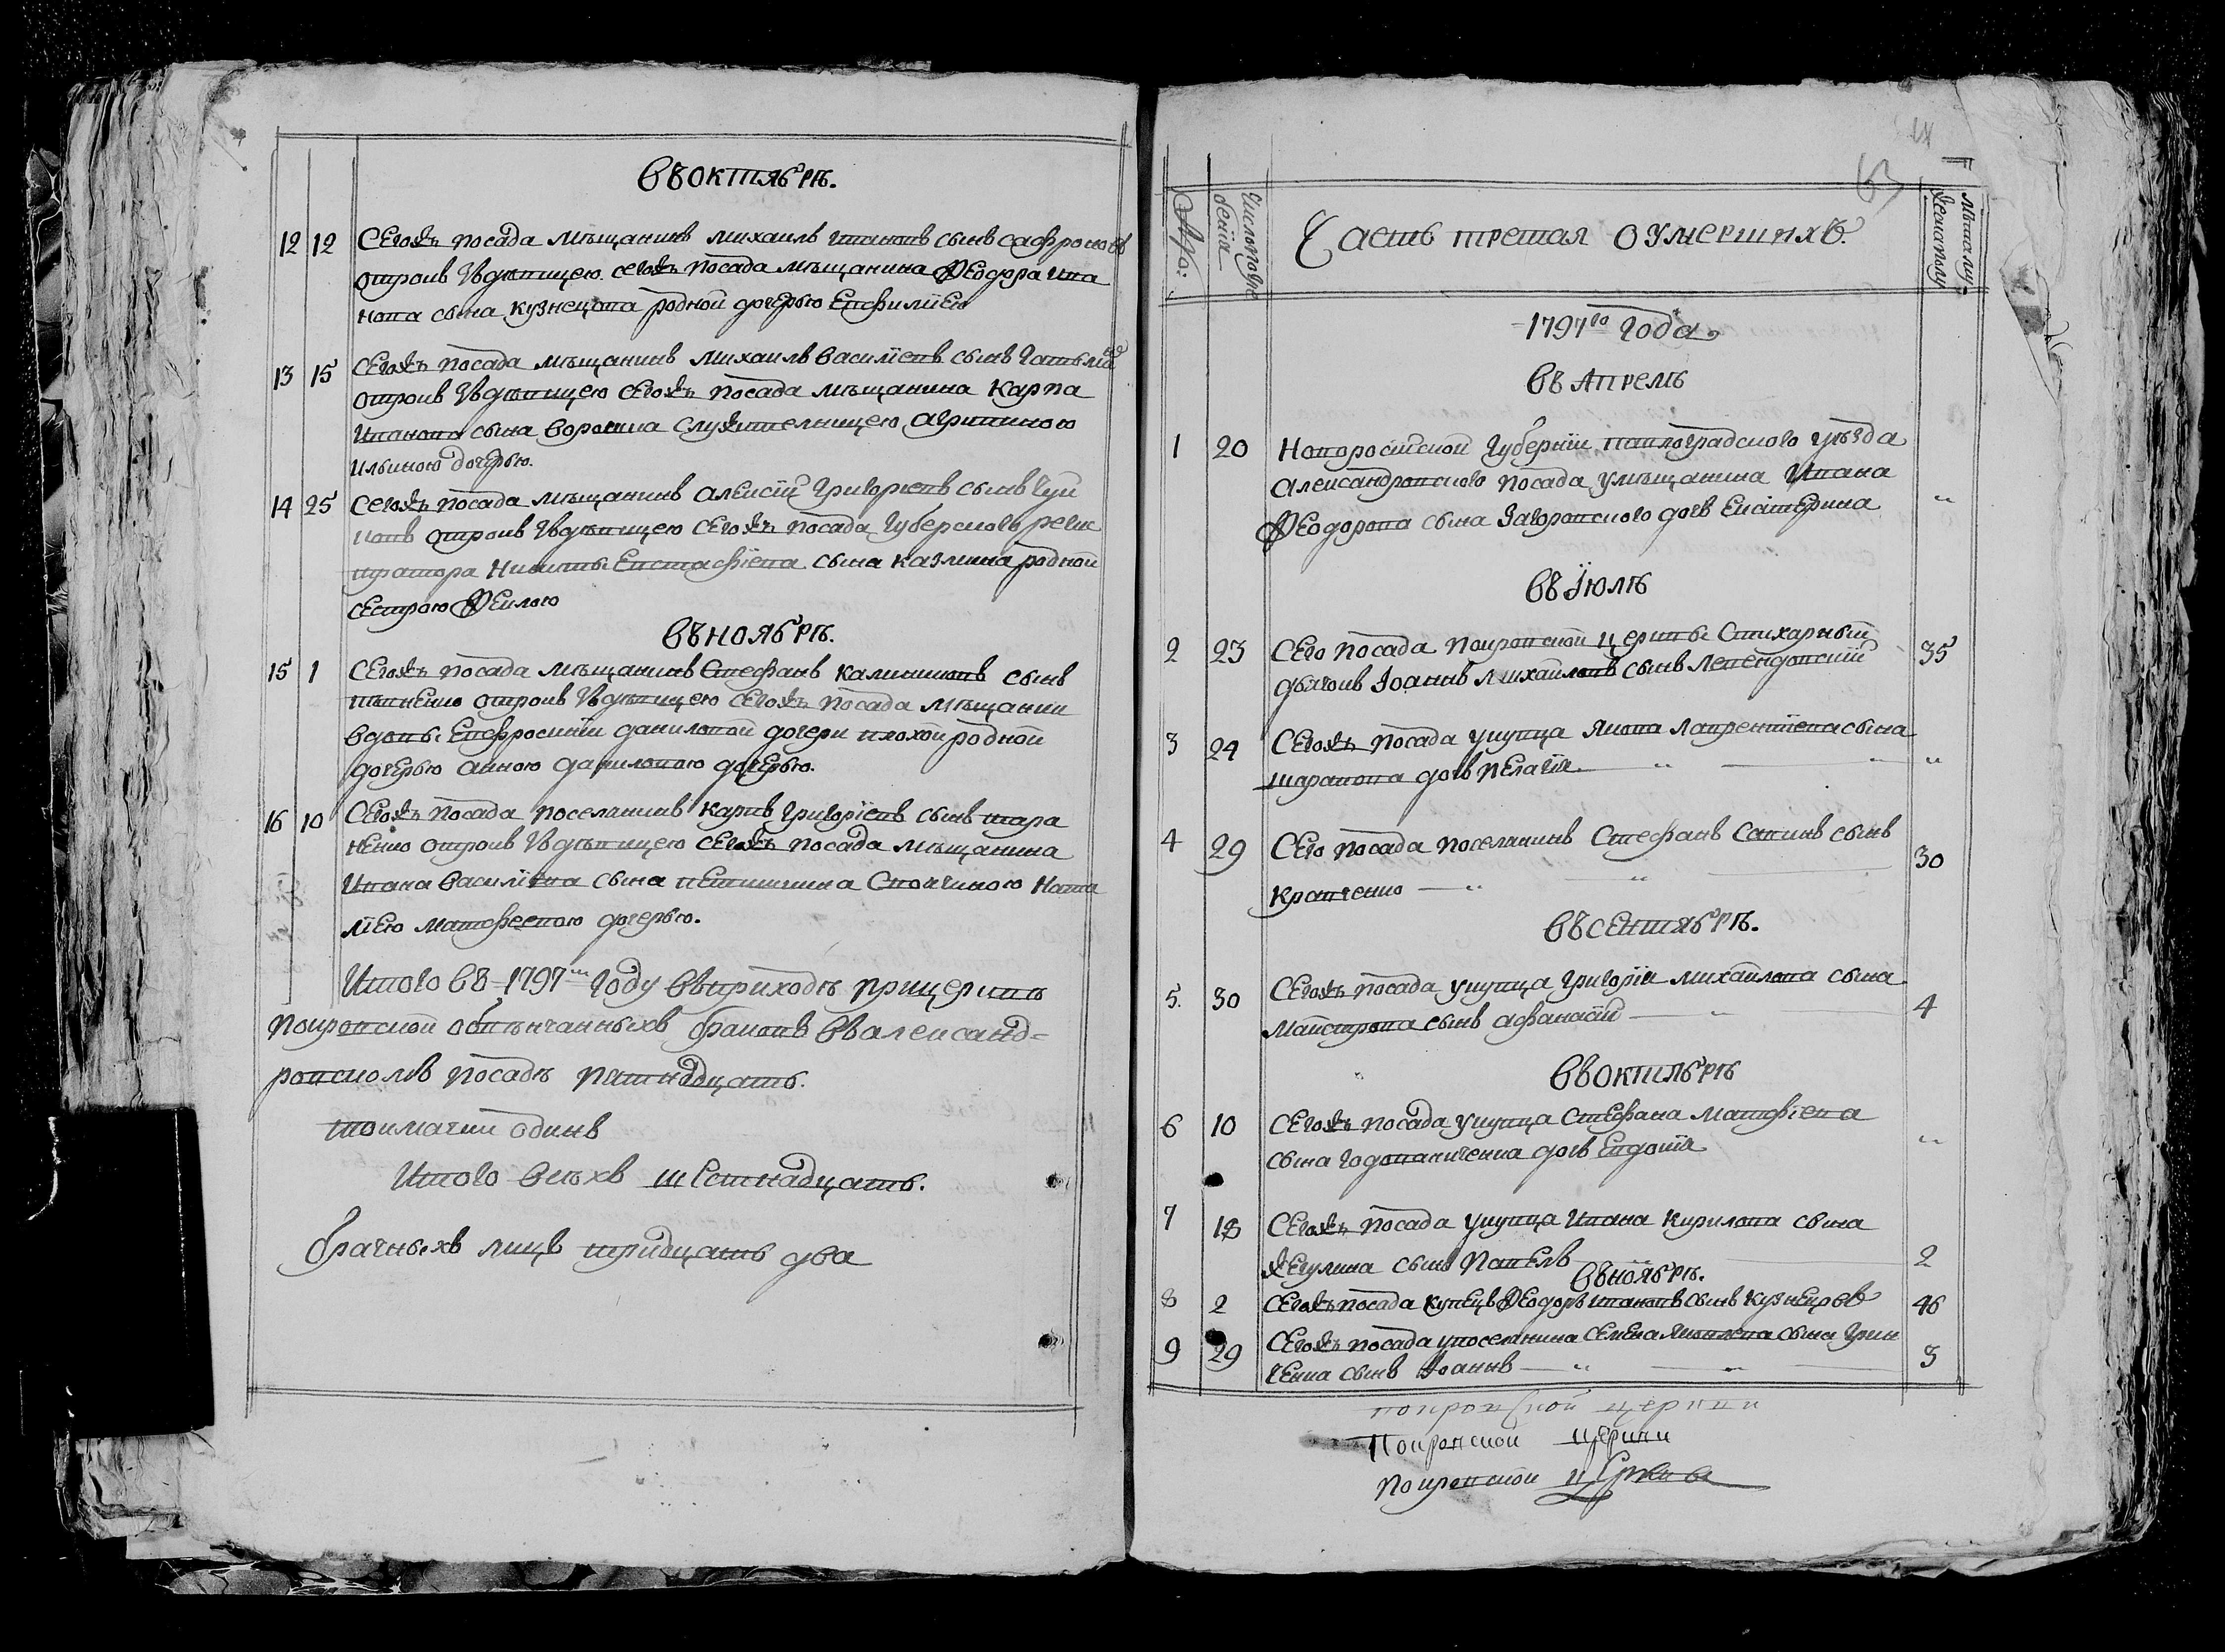 Въ октябрѣ.
12 12 Сегожъ посада мѣщанинъ михаилъ ивановъ сынъ сафроновъ
отрокъ з дѣвицею сегожъ посада мѣщанина Феодора ива
нова сына кузнецова родной дочерью Евфимїею
13 15 Сегожъ посада мѣщанинъ михаилъ василїевъ сынъ
отрокъ з дѣвицею сегожъ посада мѣщанина карпа
иванова сына воронина служителницею агрипиною
ильиною дочерью.
14 25 Сегожъ посада мѣщанинъ алексїй григорїевъ сынъ чуй
ковъ отрокъ з дѣвицею сегожъ посада губерскаго реги
стратора никиты Евстафїева сына казмина родной
сестрою Феклою
Въ ноябрѣ.
15 1 Сегожъ посада мѣщанинъ Стефанъ калиниковъ сынъ
отрокъ з дѣвицею сегожъ посада мѣщанки
вдовы Евфросинїи даниловой дочери плохой родной
дочерью анною даниловою дочерью.
16 10 Сегожъ посада поселянинъ карпъ григорїевъ сынъ тара
ненко отрокъ з дѣвицею сегожъ посада мѣщанина
ивана василїева сына своячиною ната
лїею матфеевою дочерью.
Итого въ 1797м году въ приходѣ при церквѣ
покровской обвѣнчанныхъ браковъ въ александ=
ровскомъ посадѣ пятнадцать.
одинъ
Итого всѣхъ шестнадцать.
брачныхъ лицъ тридцать два
63
Число повре
Часть третая о умершихъ.
мужеска полу
1797го года
Въ апрелѣ
1 20 Новоросїйской губернїи павлоградского уѣзда
александровского посада у мѣщанина ивана
Феодорова сына Загоровского дочь Екатерина "
Въ їюлѣ
2 23 Сего посада покровской церквы стихарный
дьячокъ Іоаннъ михайловъ сынъ левендовскїй 35
3 24 Сегожъ посада у купца якова лаврентїева сына
шарапова дочь пелагїя "
4 29 Сего посада поселянинъ Стефанъ савинъ сынъ
кравченко 30
Въ сентябрѣ.
5. 30 Сегожъ посада у купца григорїя михайлова сына
майстрова сынъ афанасїй 4
Въ октябрѣ
6 10 Сегожъ посада у купца стефана матфїева
сына годованиченка дочь Евдокїя "
7 18 Сегожъ посада у купца ивана кирилова сына
жегулина сынъ павелъ 2
Въ ноябрѣ.
8 2 Сегожъ посада купецъ Феодоръ ивановъ сынъ кузнецовъ 46
9 29 Сегожъ посада у поселянина семена яковлева сына грин
ченка сынъ Іоаннъ 3
покровской церкви
Покровской церкви
покровской церквы